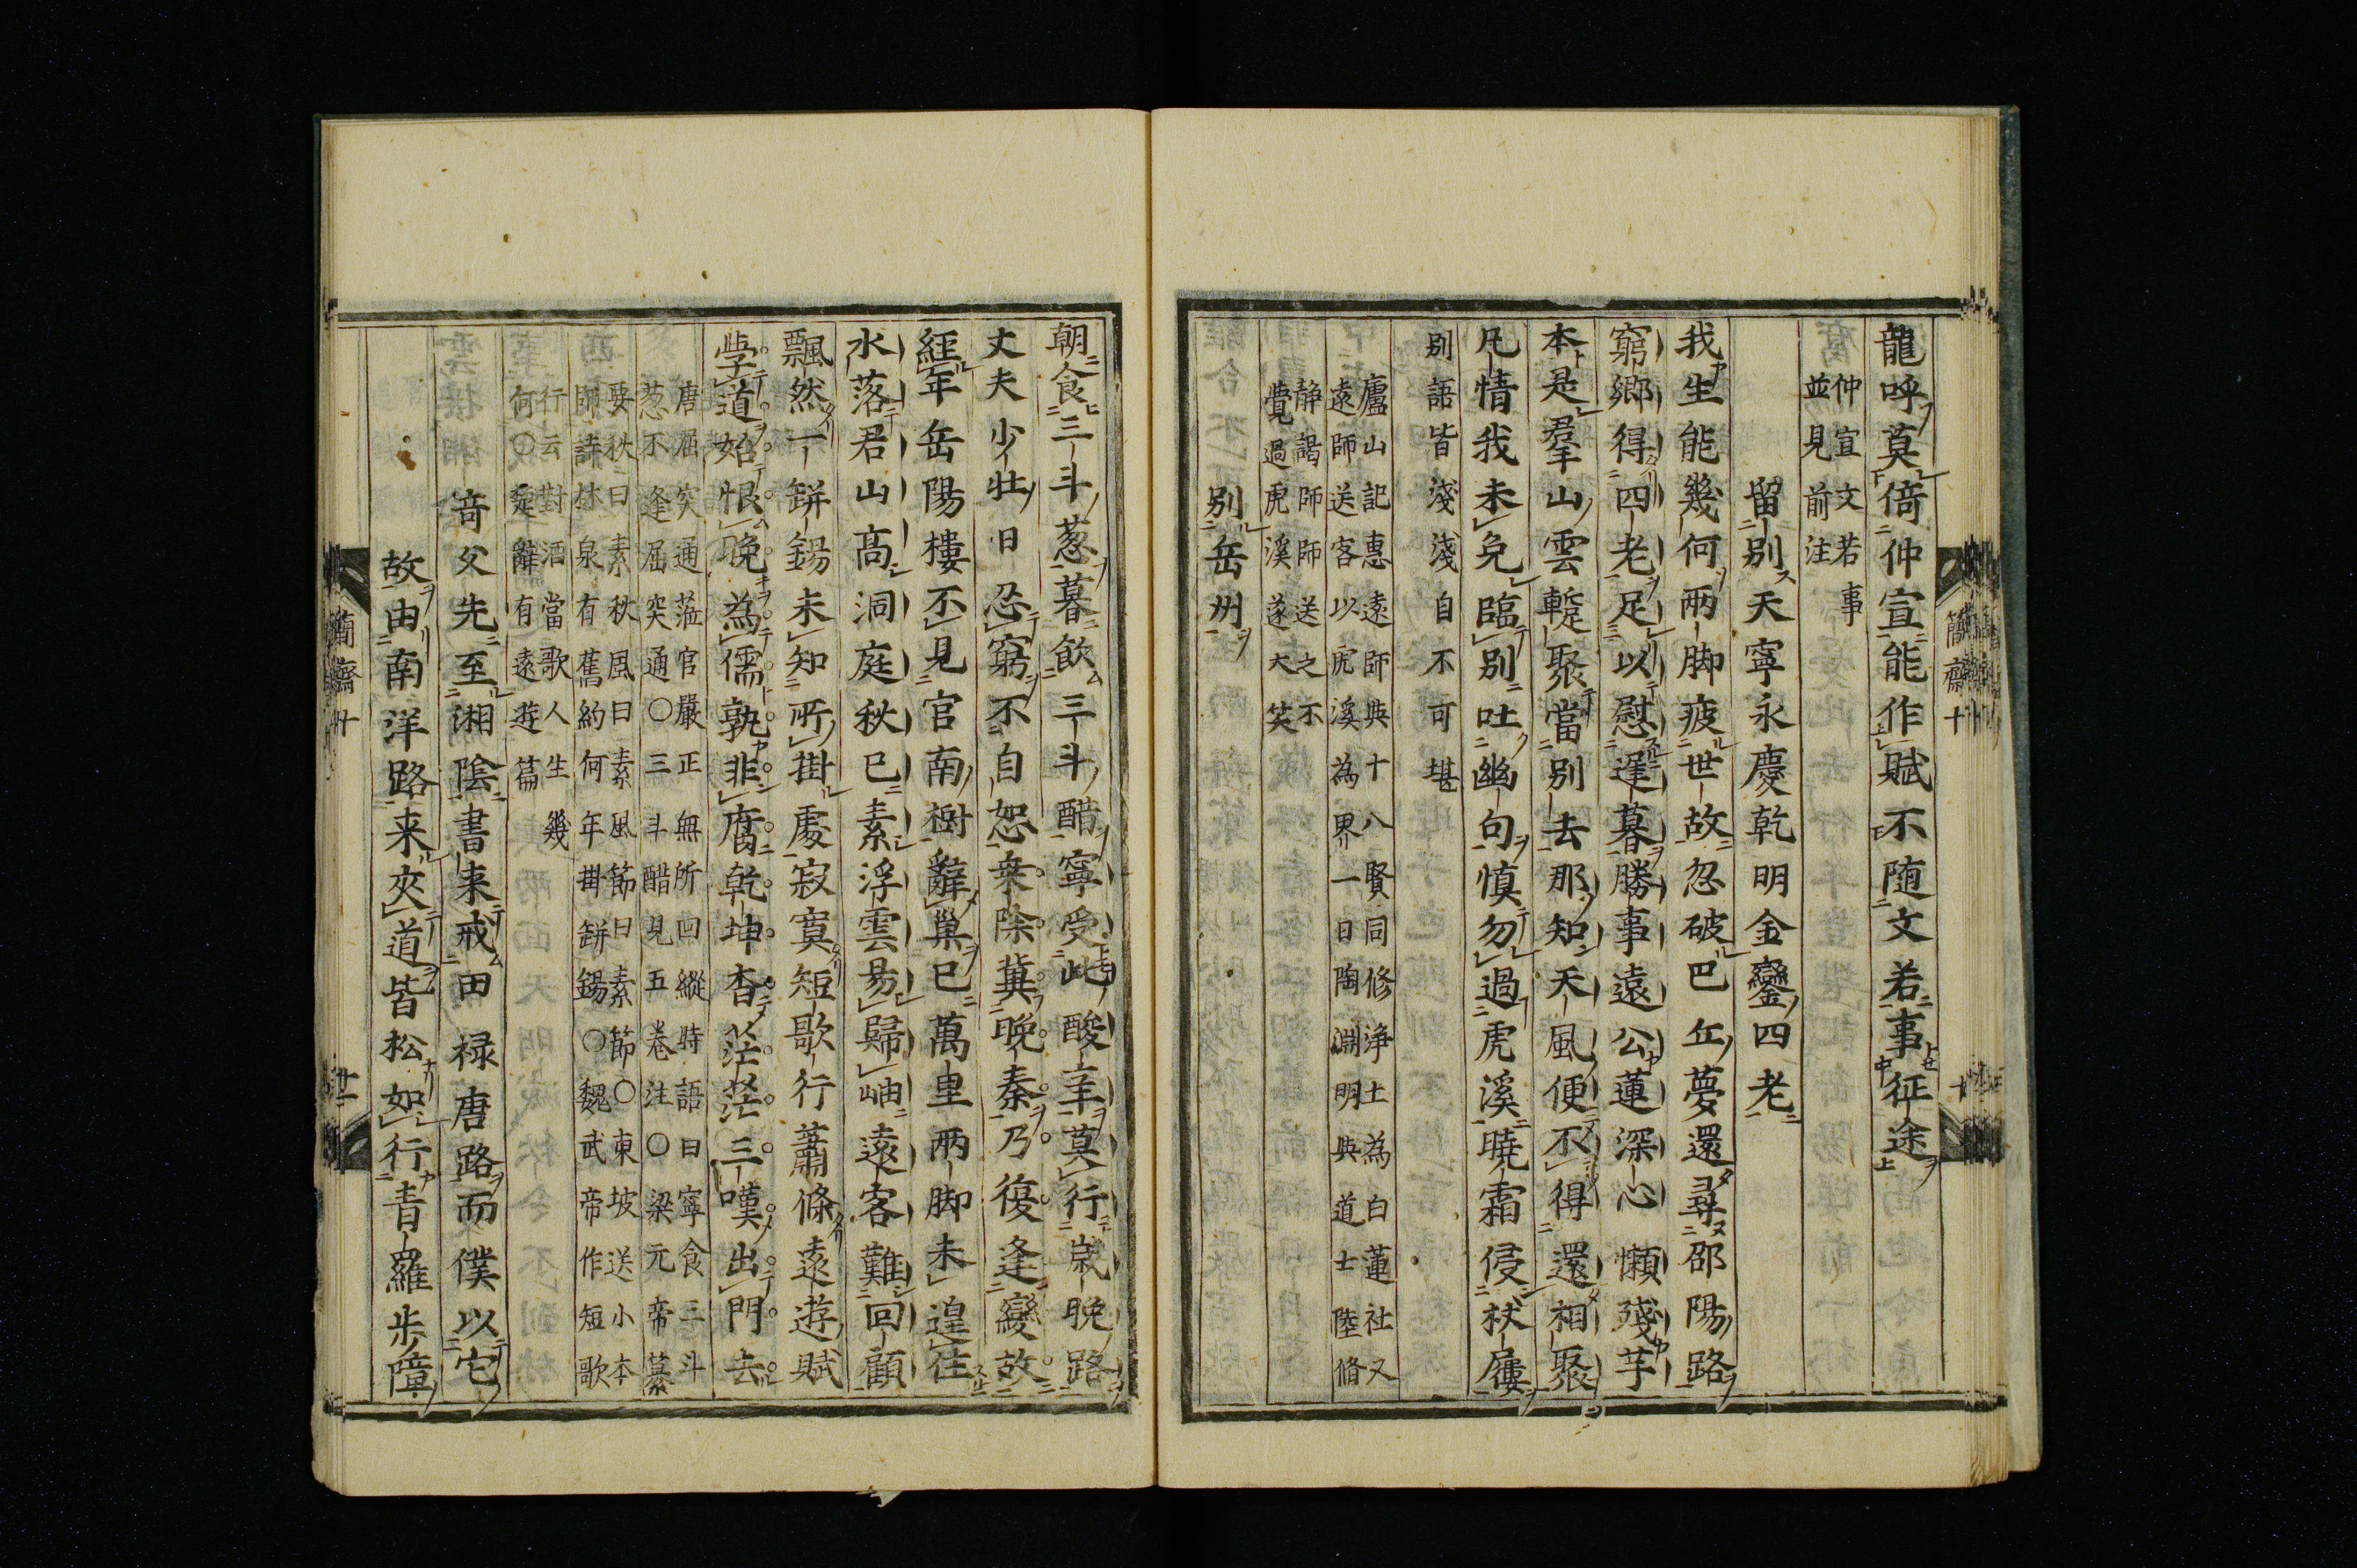 龍呼莫倚仲宣能作賦不随文若事征途
仲宣文若事
並見前注
留別天寧永慶乾明金鑾四老
我生能幾何兩脚疲世故忽破巴丘夢還尋邵陽路
窮鄉得四老足以慰遲暮勝事遠公蓮深心懶殘芋
本是羣山雲蹔聚當別去那知天風便不得還相聚
凡情我未免臨別吐幽句慎勿過虎溪曉霜侵杖屨
別語皆淺淺自不可堪
廬山記惠遠師與十八賢同修浄土為白蓮社又
遠師送客以虎溪為界一日陶淵明與道士陸脩
静謁師師送之不
覺過虎溪遂大笑
別岳州
朝食三斗葱暮飲三斗醋寧受此酸辛莫行歲晚路
丈夫少壯日忍窮不自恕乗除冀晚泰乃復逢變故
經年岳陽樓不見官南樹辭巢已萬里兩脚未遑住
水落君山高洞庭秋已素浮雲易歸岫遠客難回顧
飄然一缾錫未知所掛處寂寞短歌行蕭條遠遊賦
學道始恨晚為儒孰非腐乾坤杳茫茫三嘆出門去
唐屈突通蒞官嚴正無所回縱時語曰寧食三斗
葱不逢屈突通○三斗醋見五卷注○梁元帝纂
要秋曰素秋風曰素風節曰素節○東坡送小本
師詩林泉有舊約何年掛缾錫○魏武帝作短歌
行云對酒當歌人生幾
何○楚辭有遠遊篇
竒父先至湘陰書来戒由禄唐路而僕以它
故由南洋路来夾道皆松如行青羅歩障
簡齋十
簡齋十